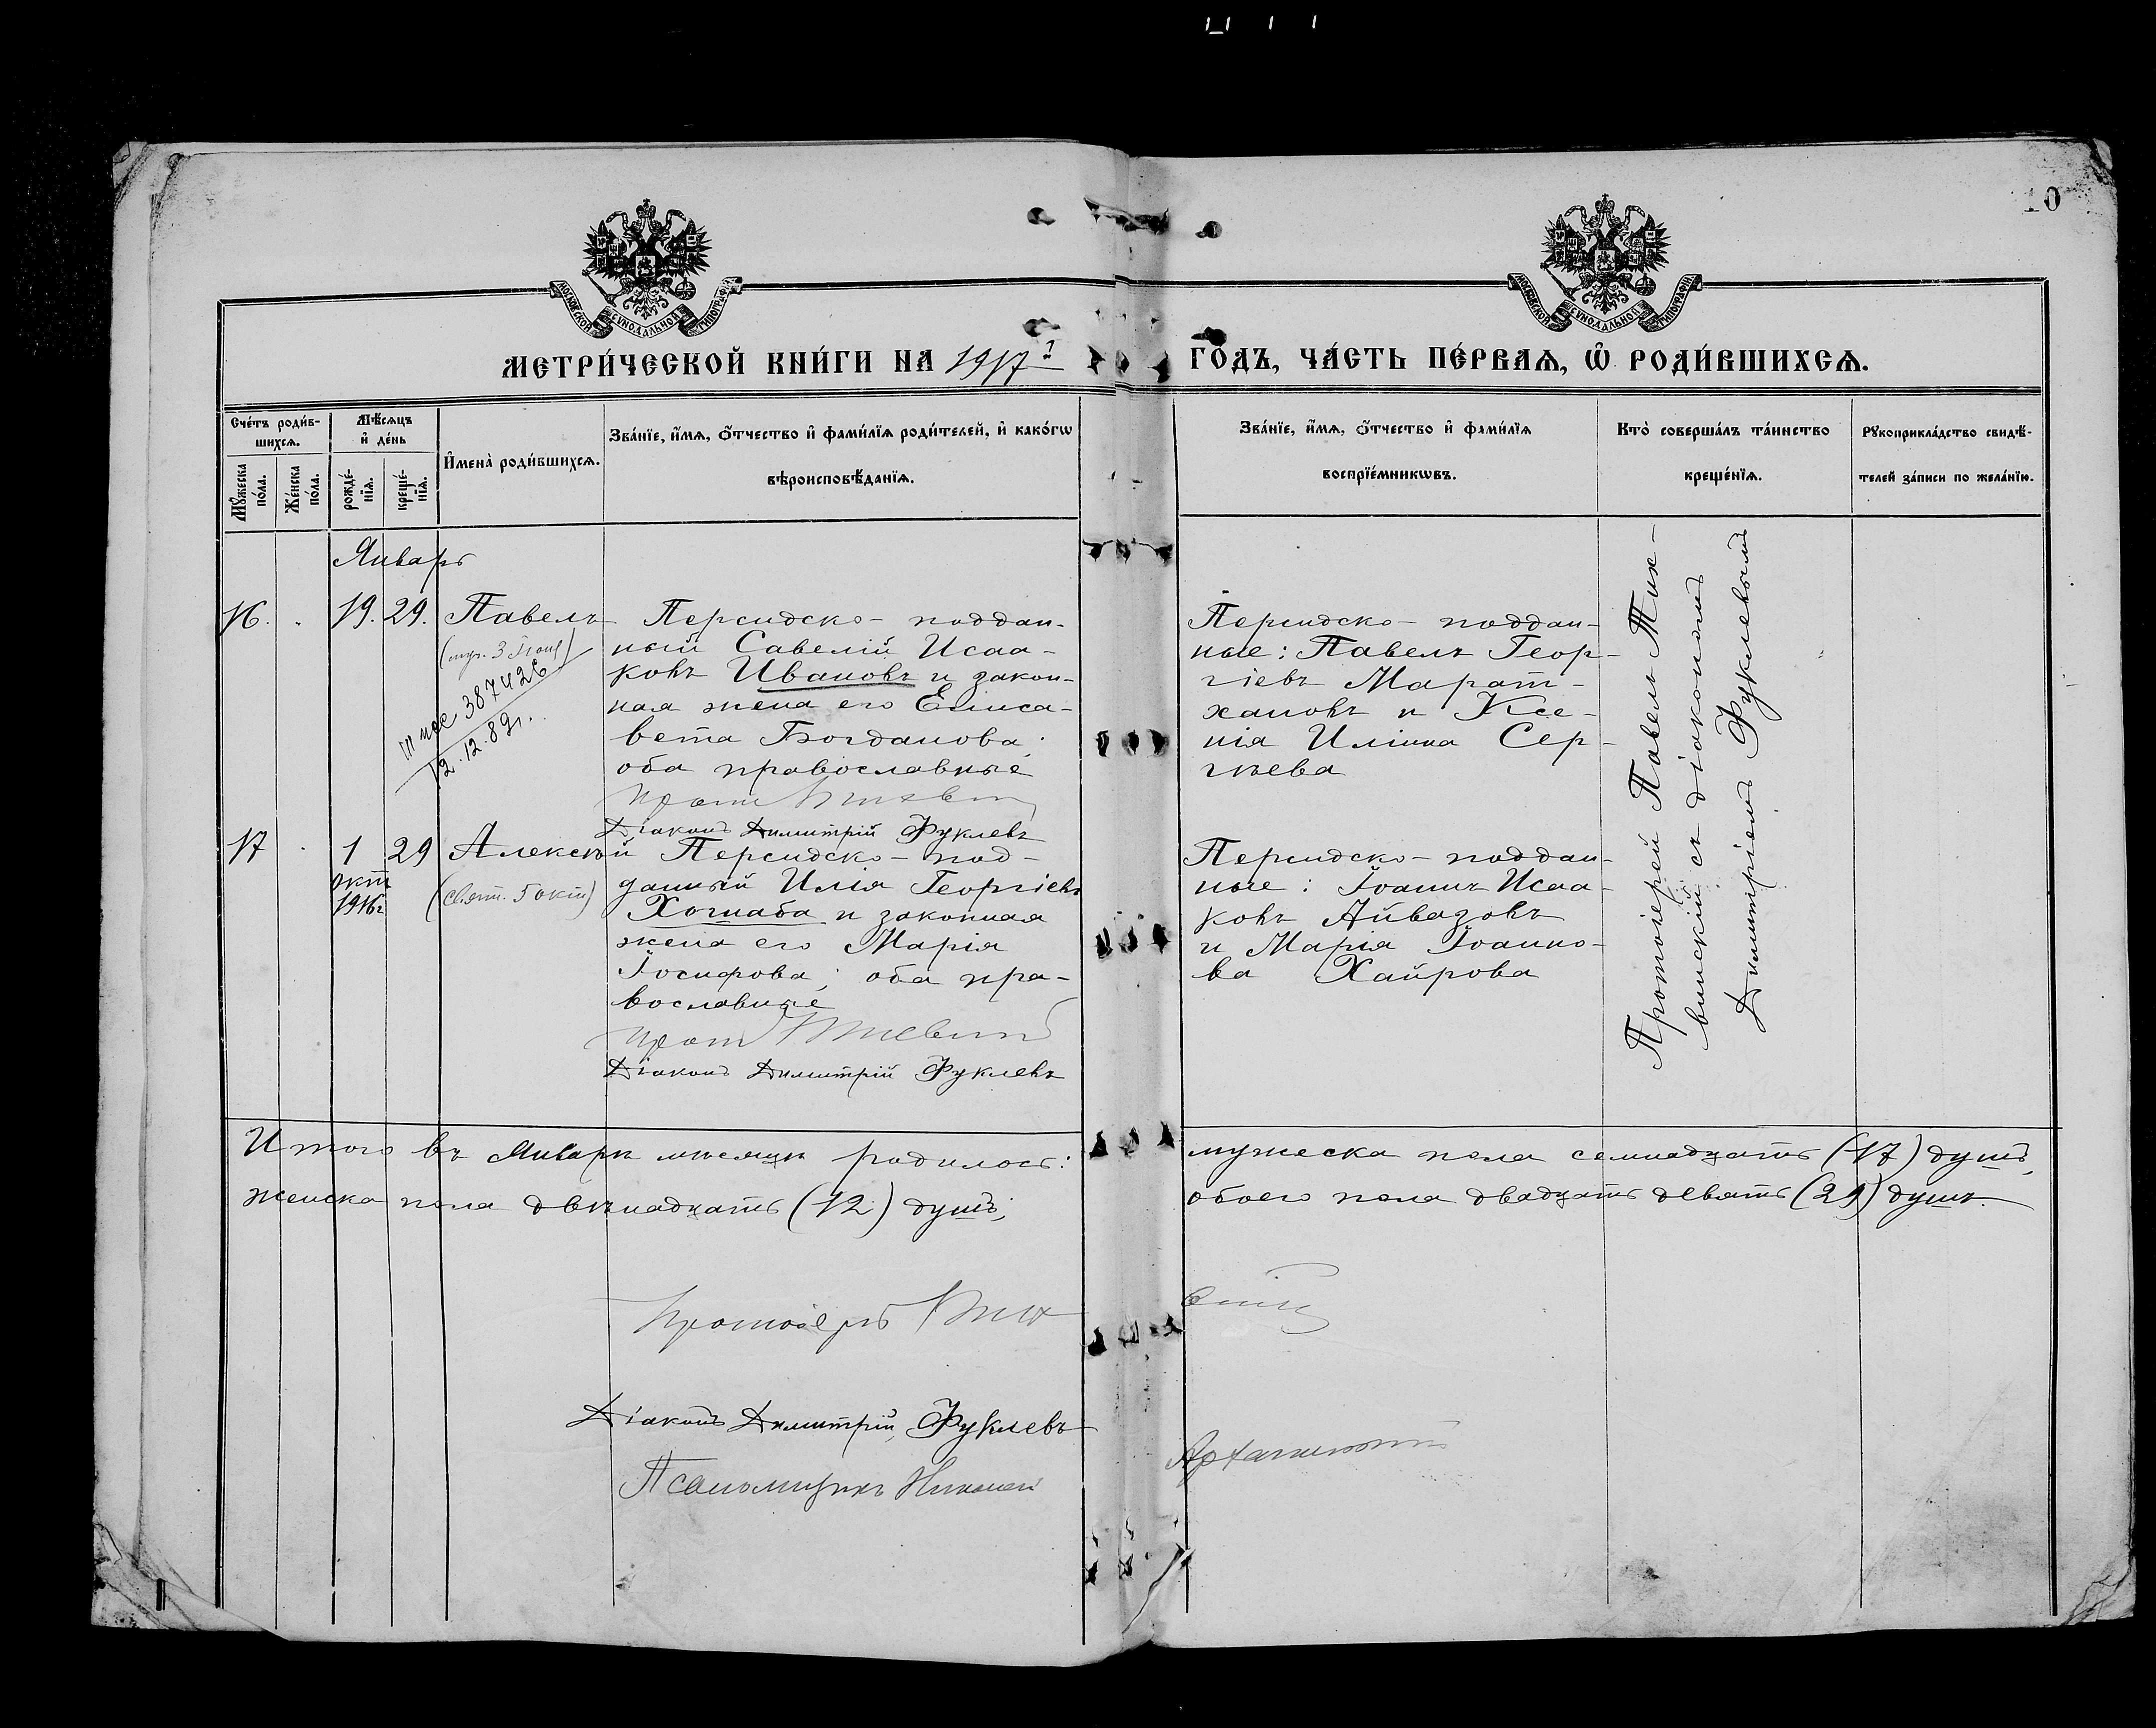 10
МОСКОВСКОЙ СѴНОДАЛЬНОЙ ТИПОГРАФІИ
МОСКОВСКОЙ СѴНОДАЛЬНОЙ ТИПОГРАФІИ
МЕТРИ́ЧЕСКОЙ КНИ́ГИ НА 1917 ГО́ДЪ, ЧА́СТЬ ПЕ́РВАѦ, Ѡ҆ РОДИ́ВШИХСѦ.
Сче́тъ роди́в-
шихсѧ.
Мꙋ́жеска по́ла.
Же́нска по́ла.
Мѣ́сѧцъ
и҆ де́нь
рожде́-
нїѧ.
креще́-
нїѧ.
И҆мена̀ роди́вшихсѧ.
Зва́нїе, и҆́мѧ, ѻ҆́тчество и҆ фами́лїѧ роди́телей, и҆ како́гѡ
вѣроисповѣ́данїѧ.
Зва́нїе, и҆́мѧ, ѻ҆́тчество и҆ фами́лїѧ
воспрїе́мникѡвъ.
Кто̀ соверша́лъ та́инство
креще́нїѧ.
Рꙋкоприкла́дство свидѣ́-
телей за́писи по жела́нїю.
Январь
16. 19. 29. Павелъ
12.12.89г.
Персидско-поддан-
ный Савелій Исаа-
ковъ Ивановъ и закон-
ная жена его Елиса-
вета Богданова;
оба православные
Діаконъ Димитрій Фуклевъ
Персидско-поддан-
ные: Павелъ Геор-
гіевъ Марат-
хановъ и Ксе-
нія Иліина Сер-
гѣева
Протоіерей Павелъ Тих-
винскій съ діакономъ
Димитріемъ Фуклевымъ
17 1 окт 1916г 29 Алексѣй
(свят. 5 окт)
Персидско-под-
данный Илія Георгіевъ
Хошаба и законная
жена его Марія
Іосифова; оба пра-
вославные
Діаконъ Димитрій Фуклевъ
Персидско-поддан-
ные: Іоаннъ Исаа-
ковъ Айвазовъ
и Марія Іоанно-
ва Хаирова
Итого въ Январѣ мѣсяцѣ родилось: мужеска пола семнадцать (17) душъ,
женска пола двѣнадцать (12) душъ; обоего пола двадцать девять (29) душъ.
Протоіерей
Діаконъ Димитрій Фуклевъ
Псаломщикъ Николай